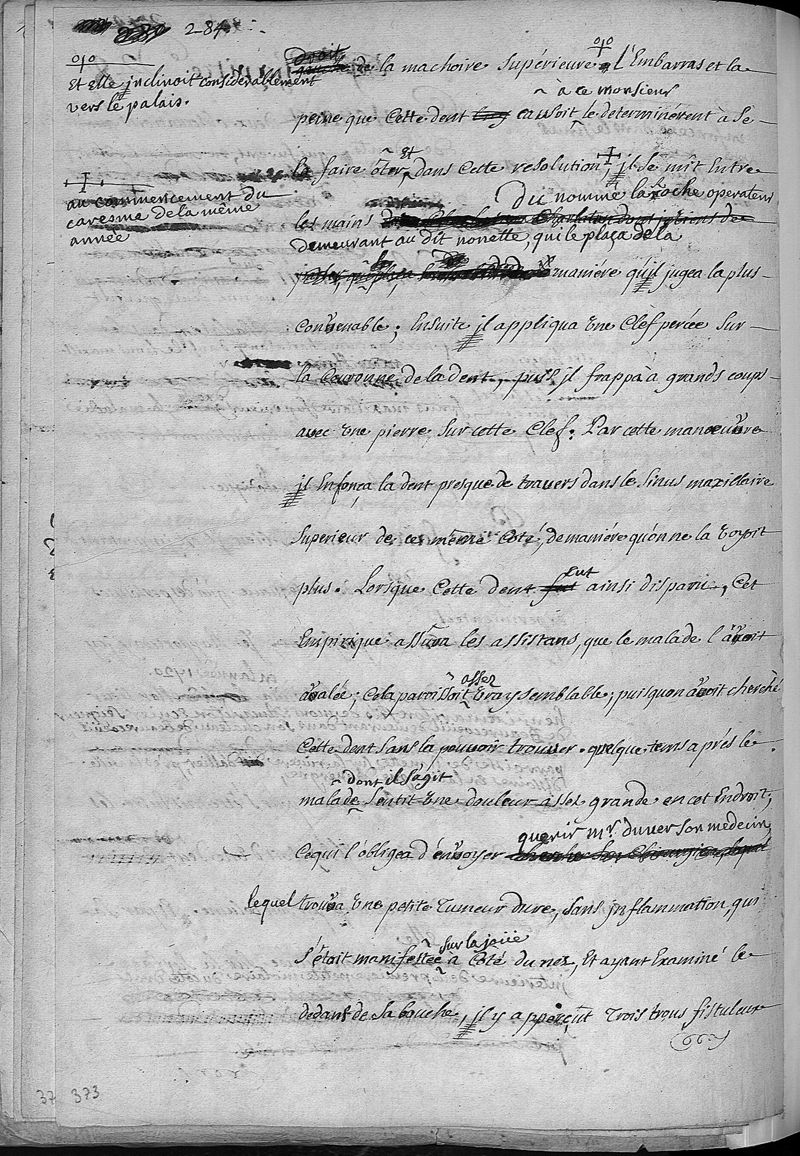 284.
Et elle jnclinoit considerablement
vers le palais.
droit
gauche de la machoire Supérieure, l'Embarras et la
à ce monsieur
peine que Cette dent causoit le determinérent à se
la faire ôter, et dans Cette resolution, jl se mit Entre
au commencement du
caresme de la même
année
du nommé la roche operateur
les mains
demeurant au dit nonette, qui le plaça de la
maniére qu'jl jugea la plus
convenable; Ensuite jl appliqua une Clef percée sur
la Couronne de la dent, puis jl frappa à grands coups
avec une pierre sur cette Clef. Par cette manoeuvre
jl Enfonça la dent presque de travers dans le Sinus maxillaire
Superieur de ce même Coté, de maniére qu'on ne la voyoit
plus. Lorsque Cette dent fut ainsi disparüe, Cet
Empirique assura les assistans, que le malade l'avoit
avalée; Cela paroissoit assez vraysemblable; puisqu'on avoit cherché
Cette dent sans la pouvoir trouver. quelque tems aprés le
dont il s'agit
malade sentit une douleur assez grande en cet Endroit,
querir mr. duver son medecin
Ce qui l'obligea d'envoyer
lequel trouva une petite tumeur dure, sans jnflammation, qui
sur la joüe
s'étoit manifestée à Coté du nez, Et ayant Examiné le
dedans de sa bouche, jl y apperçut Trois trous fistuleux
373